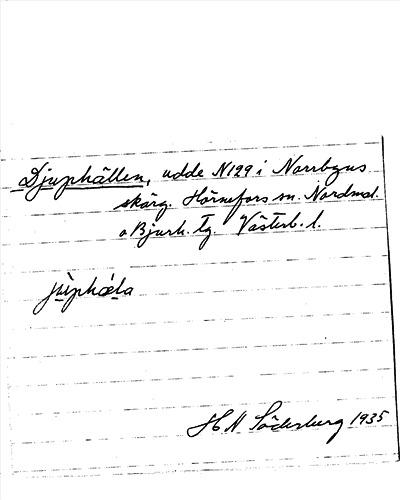 Djuphällen, udde N129 i Norrbyns
skärg. Hörnefors sn. Nordmal.
o Bjurh. tg. Västerb. l.
jùphæla
H N Söderberg 1935